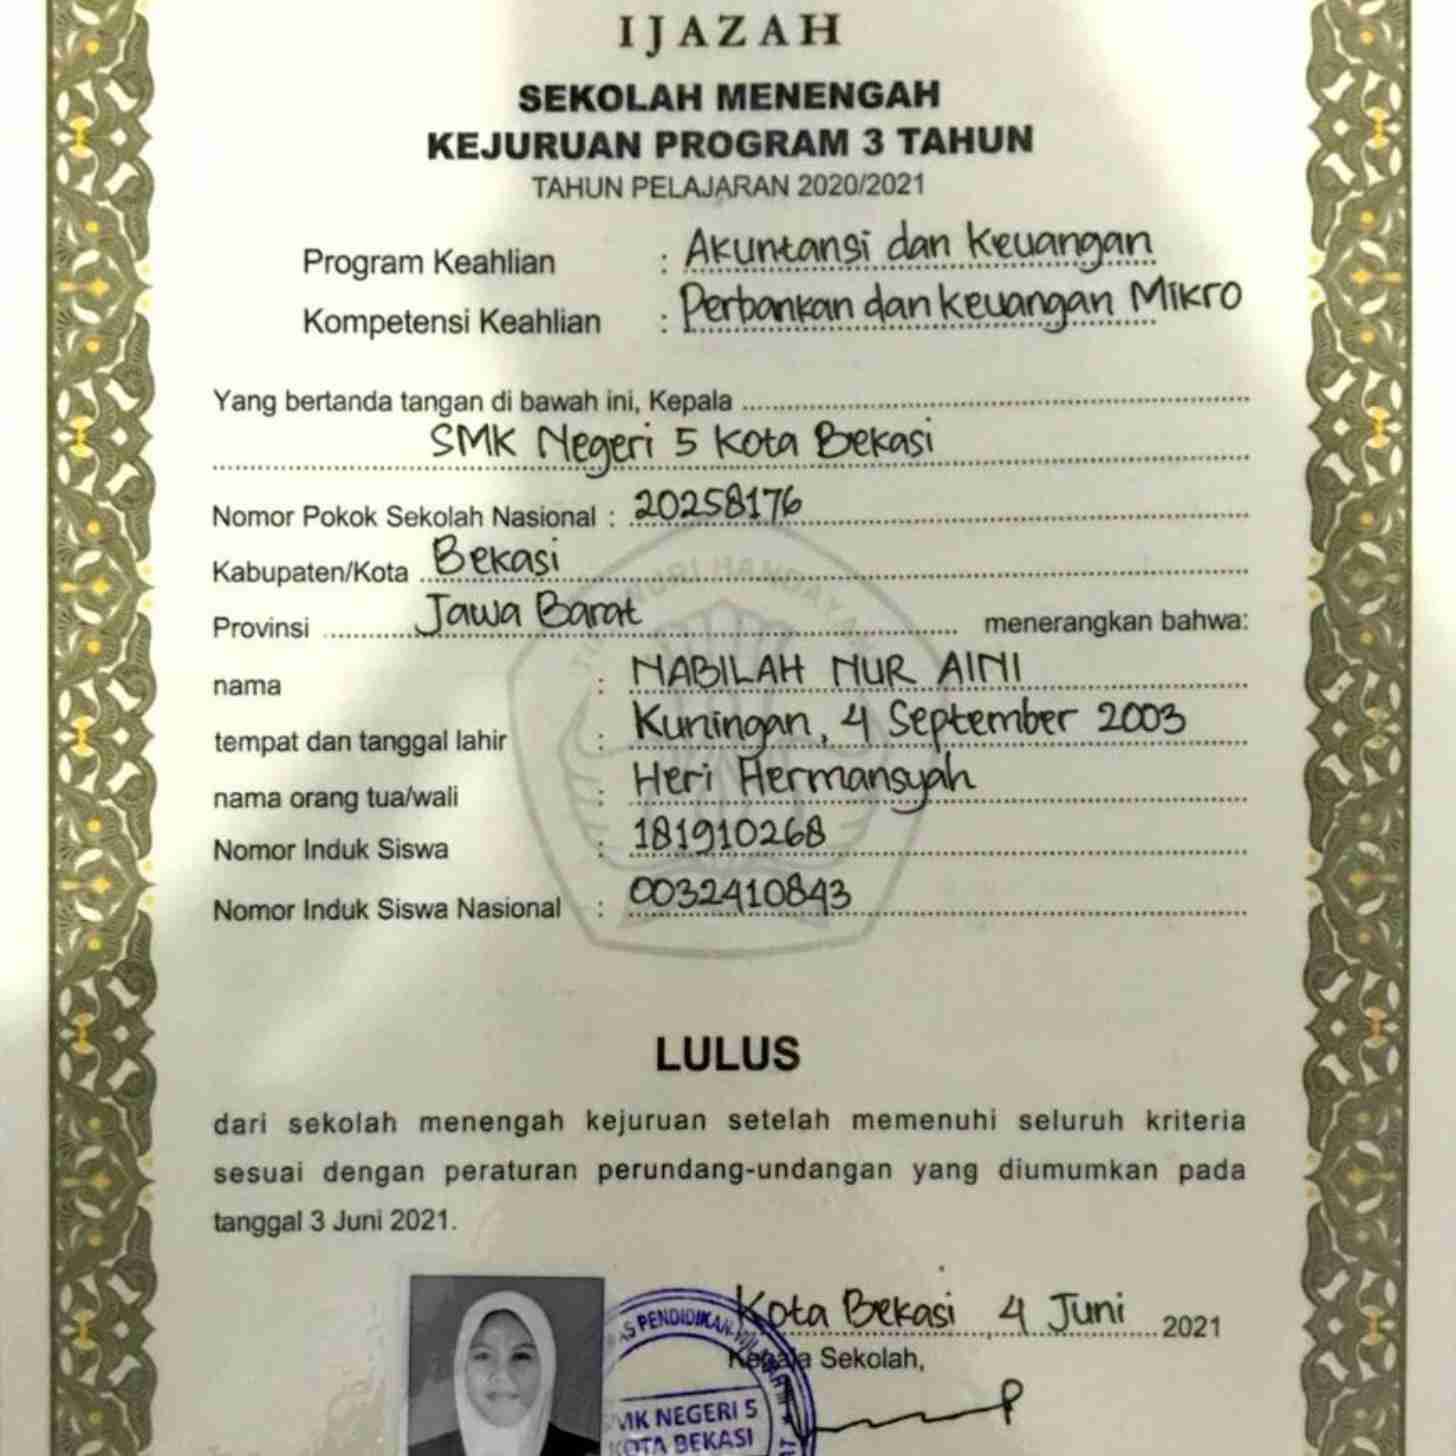 IJAZAH
SEKOLAH MENENGAH
KEJURUAN PROGRAM 3 TAHUN
TAHUN PELAJARAN 2020/2021
Program Keahlian : Akuntansi dan Keuangan
Kompetensi Keahlian : Perbankan dan keuangan Mikro
Yang bertanda tangan di bawah ini, Kepala
SMK Negeri 5 Kota Bekasi
Nomor Pokok Sekolah Nasional : 20258176
Kabupaten/Kota Bekasi
Provinsi Jawa Barat menerangkan bahwa:
nama : NABILAH NUR AINI
tempat dan tanggal lahir : Kuningan, 4 September 2003
nama orang tua/wali : Heri Hermansyah
Nomor Induk Siswa : 181910268
Nomor Induk Siswa Nasional : 0032410843
LULUS
dari sekolah menengah kejuruan setelah memenuhi seluruh kriteria
sesuai dengan peraturan perundang-undangan yang diumumkan pada
tanggal 3 Juni 2021.
Kota Bekasi, 4 Juni 2021
Kepala Sekolah,
PENDIDIKAN
NEGERI 5
KOTA BEKASI